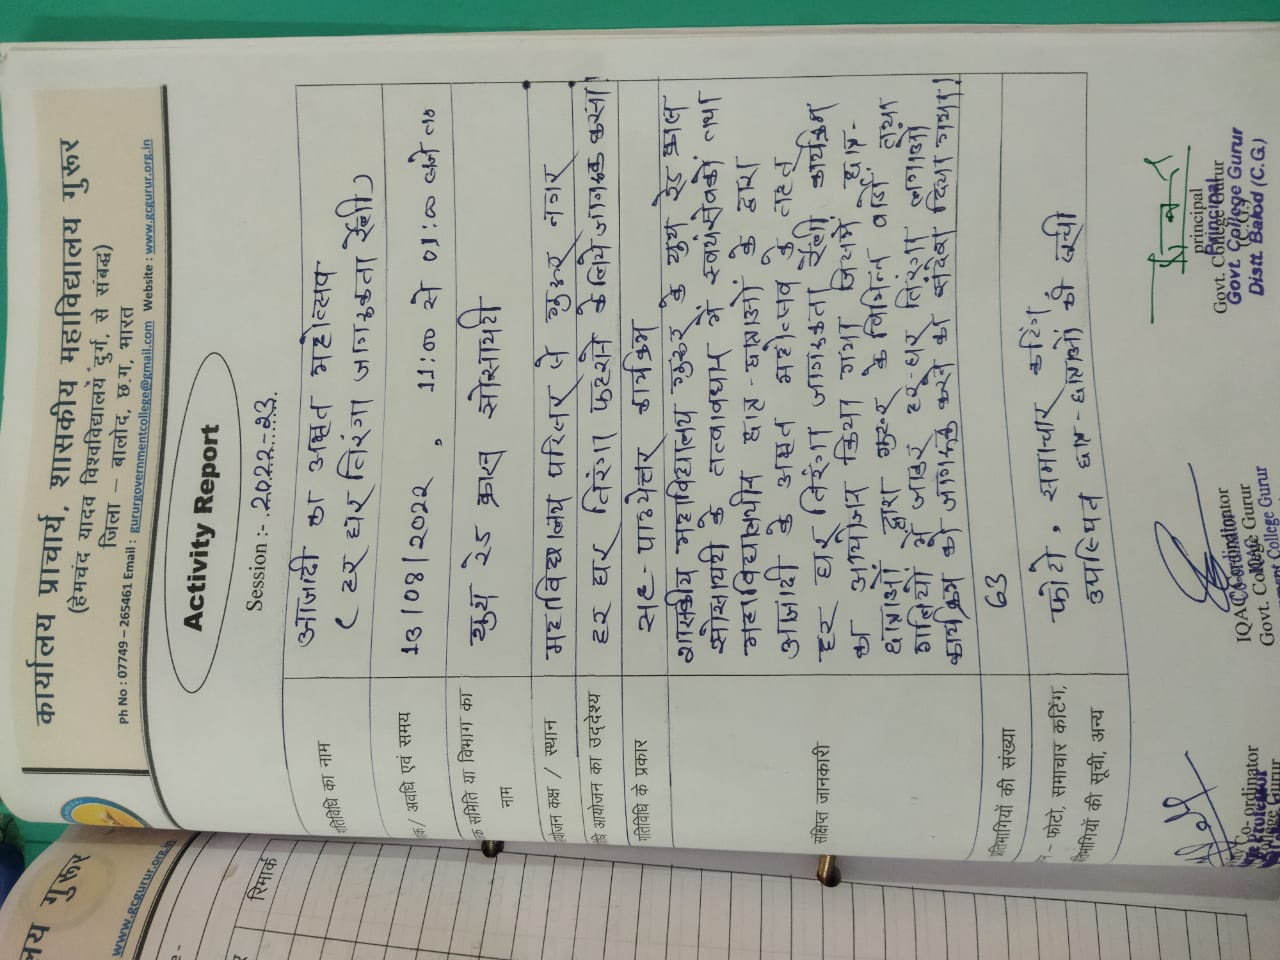 कार्यालय प्राचार्य, शासकीय महाविद्यालय गुरूर
(हेमचंद यादव विश्वविद्यालय दुर्ग, से संबद्ध)
जिला – बालोद, छ.ग, भारत
Ph No : 07749 – 265461 Email : gururgovernmentcollege@gmail.com Website : www.gcgurur.org.in
Activity Report
Session :- 2022-23
गतिविधि का नाम
आजादी का अमृत महोत्सव
( हर घर तिरंगा जागरूकता रैली )
/ अवधि एवं समय
13/08/2022 , 11:00 से 01:00 बजे तक
समिति या विभाग का
नाम
यूथ रेड क्रास सोसायटी
कक्ष / स्थान
महाविद्यालय परिसर से गुरूर नगर
आयोजन का उद्देश्य
हर घर तिरंगा फहराने के लिये जागरूक करना।
गतिविधि के प्रकार
सह-पाठ्येत्तर कार्यक्रम
संक्षिप्त जानकारी
शासकीय महाविद्यालय गुरूर के यूथ रेड क्रास
सोसायटी के तत्वावधान में स्वयंसेवकों तथा
महाविद्यालयीन छात्र-छात्राओं के द्वारा
आजादी के अमृत महोत्सव के तहत
हर घर तिरंगा जागरूकता रैली कार्यक्रम
का आयोजन किया गया जिसमें छात्र-
छात्राओं द्वारा गुरूर के विभिन्न वार्ड तथा
गलियों में जाकर हर-घर तिरंगा लगाओ
कार्यक्रम को जागरूक करने का संदेश दिया गया।
प्रतिभागियों की संख्या
63
– फोटो, समाचार कटिंग,
प्रतिभागियों की सूची, अन्य
फोटो, समाचार कटिंग
उपस्थित छात्र-छात्राओं की सूची
Co-ordinator
IQAC Co-ordinator
Govt. College Gurur
principal
Govt. College Gurur
Principal
Govt. College Gurur
Distt. Balod (C.G.)
गुरूर
www.gcgurur.org.in
रिमार्क